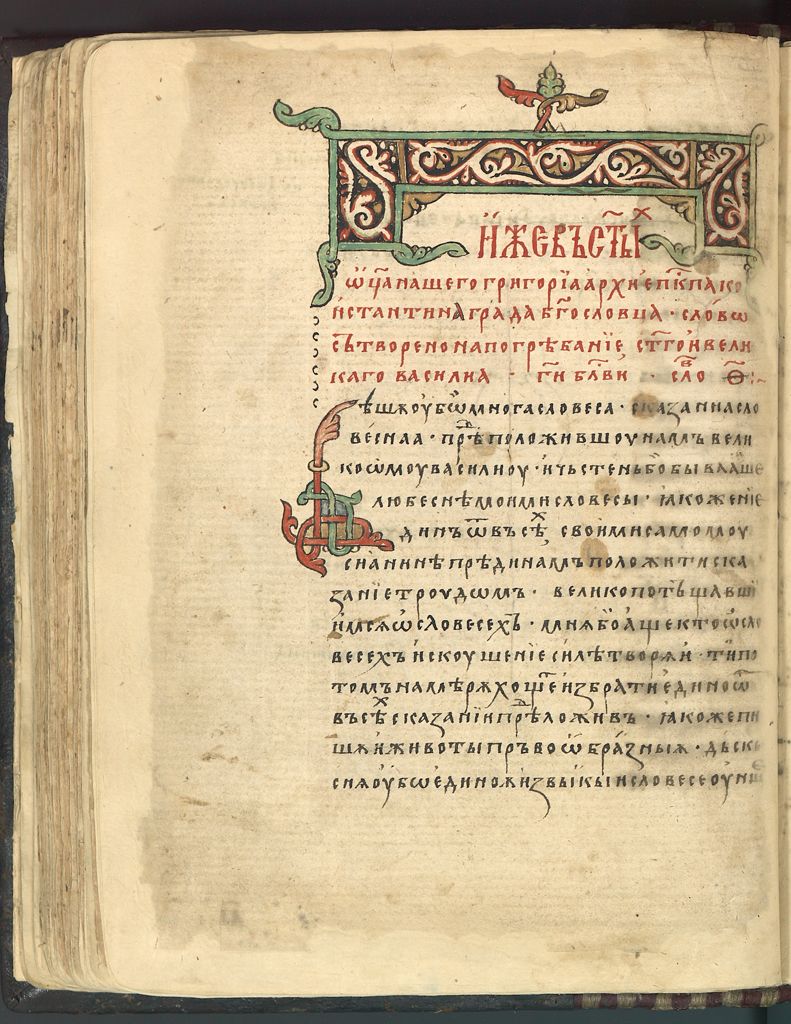 И҆́ЖЕВЪСТ҃Ыⷯ
ѡ҆ц҃ана́шегогриго́рїаа҆рхїе҆пⷭ҇кпако
нстантина́гра́дабг҃осло́вца · сло́вѡ
сътворенонапогрѣба́нїе ст҃го́ивели
каго васи́лиꙗ · ги҃ блⷭ҇ви · слоⷡ҇ ѳ҃:~
ѣшкоу҆́бѡмногасловеса · сказаннасло
ве́снаа · прѣⷣположи́вшоунамъвели
коѡмоуваси́лиоу · и҆чьстенъбобывааше
любеснѣмоимислове́сы · ꙗкоженїе
динъѿвъсѣⷯ свои́мисамомоу
сианинѣпрѣдинамъположи́тиска
за́нїетроудѡмъ · великопотъщавши
и҆мсяѡ҆словесехъ · мняб̾оа҆щектоѡ҆сло
весехъискоуше́нїесилѣтворяи · тїипо
томънамѣряхощеⷮизбратиединоѿ
въсѣⷯсказанїипрѣⷣложивъ · ꙗкожепи
шяиживотыпръвоѡбра́зныя · дъске
сияоу҆́бѡединояизвыкыисловесеоунш